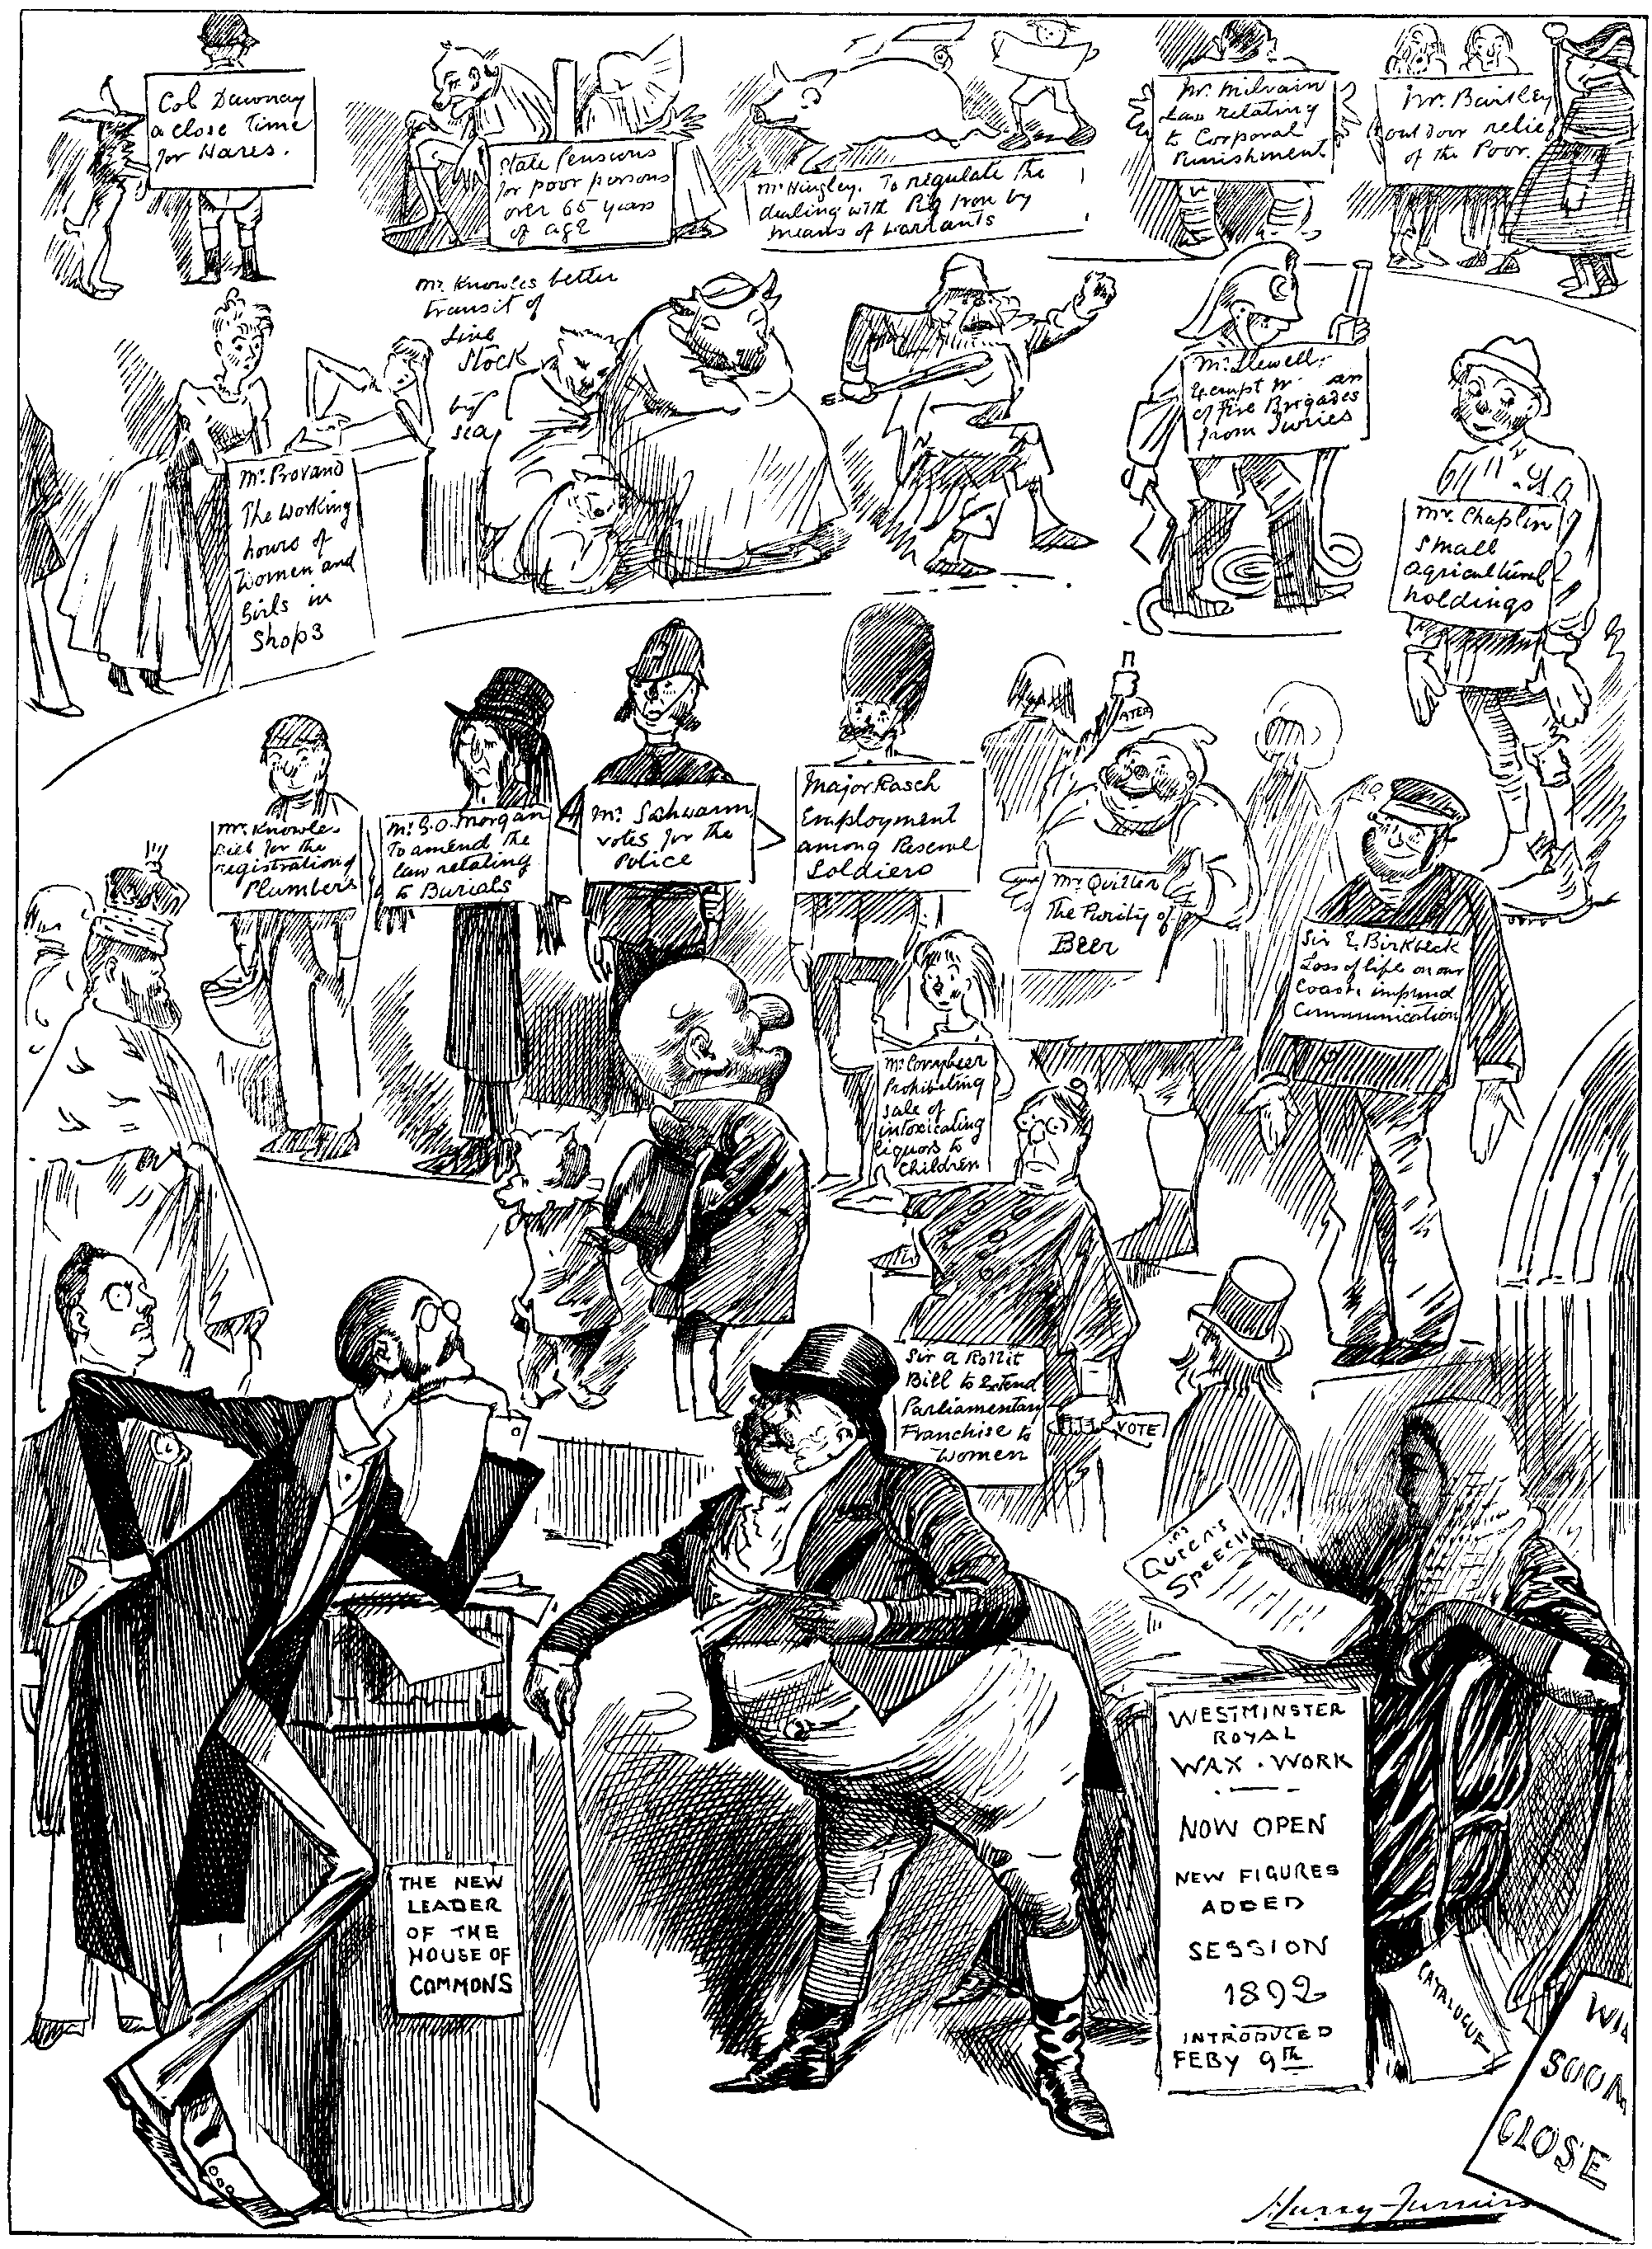 Col Dawnay
a close Time
for Hares.
State Pensions
for poor persons
over 65 years
of age
Mr Hingley. To regulate the
dealing with Pig Iron by
means of warrants
Mr. Milvain
Law relating
to Corporal
Punishment
Mr. Bartley
outdoor relief
of the Poor.
Mr. Knowles better
transit of
live
stock
by
sea
Mr. Provand
The working
hours of
Women and
Girls in
Shops
Mr. Llewell
Exempt
of Fire Brigades
from Juries
Mr. Chaplin
Small
agricultural
holdings
Mr. Knowles
Bill for the
registration of
Plumbers
Mr. G.O. Morgan
To amend the
law relating
to Burials
Mr. Schwann
votes for the
Police
Major Rasch
Employment
among Reserve
Soldiers
Mr. Quilter
The Purity of
Beer
Sir E. Birkbeck
Loss of life on our
Coasts improved
Communication
Mr Conybeer
Prohibiting
sale of
intoxicating
liquors to
children
Sir A Rollit
Bill to Extend
Parliamentary
Franchise to
Women
VOTE
Queen's
Speech
WESTMINSTER
ROYAL
WAX . WORK
NOW OPEN
NEW FIGURES
ADDED
SESSION
1892
INTRODUCED
FEBY 9th
THE NEW
LEADER
OF THE
HOUSE OF
COMMONS
CATALOGUE
WIL
SOON
CLOSE
Harry Furniss